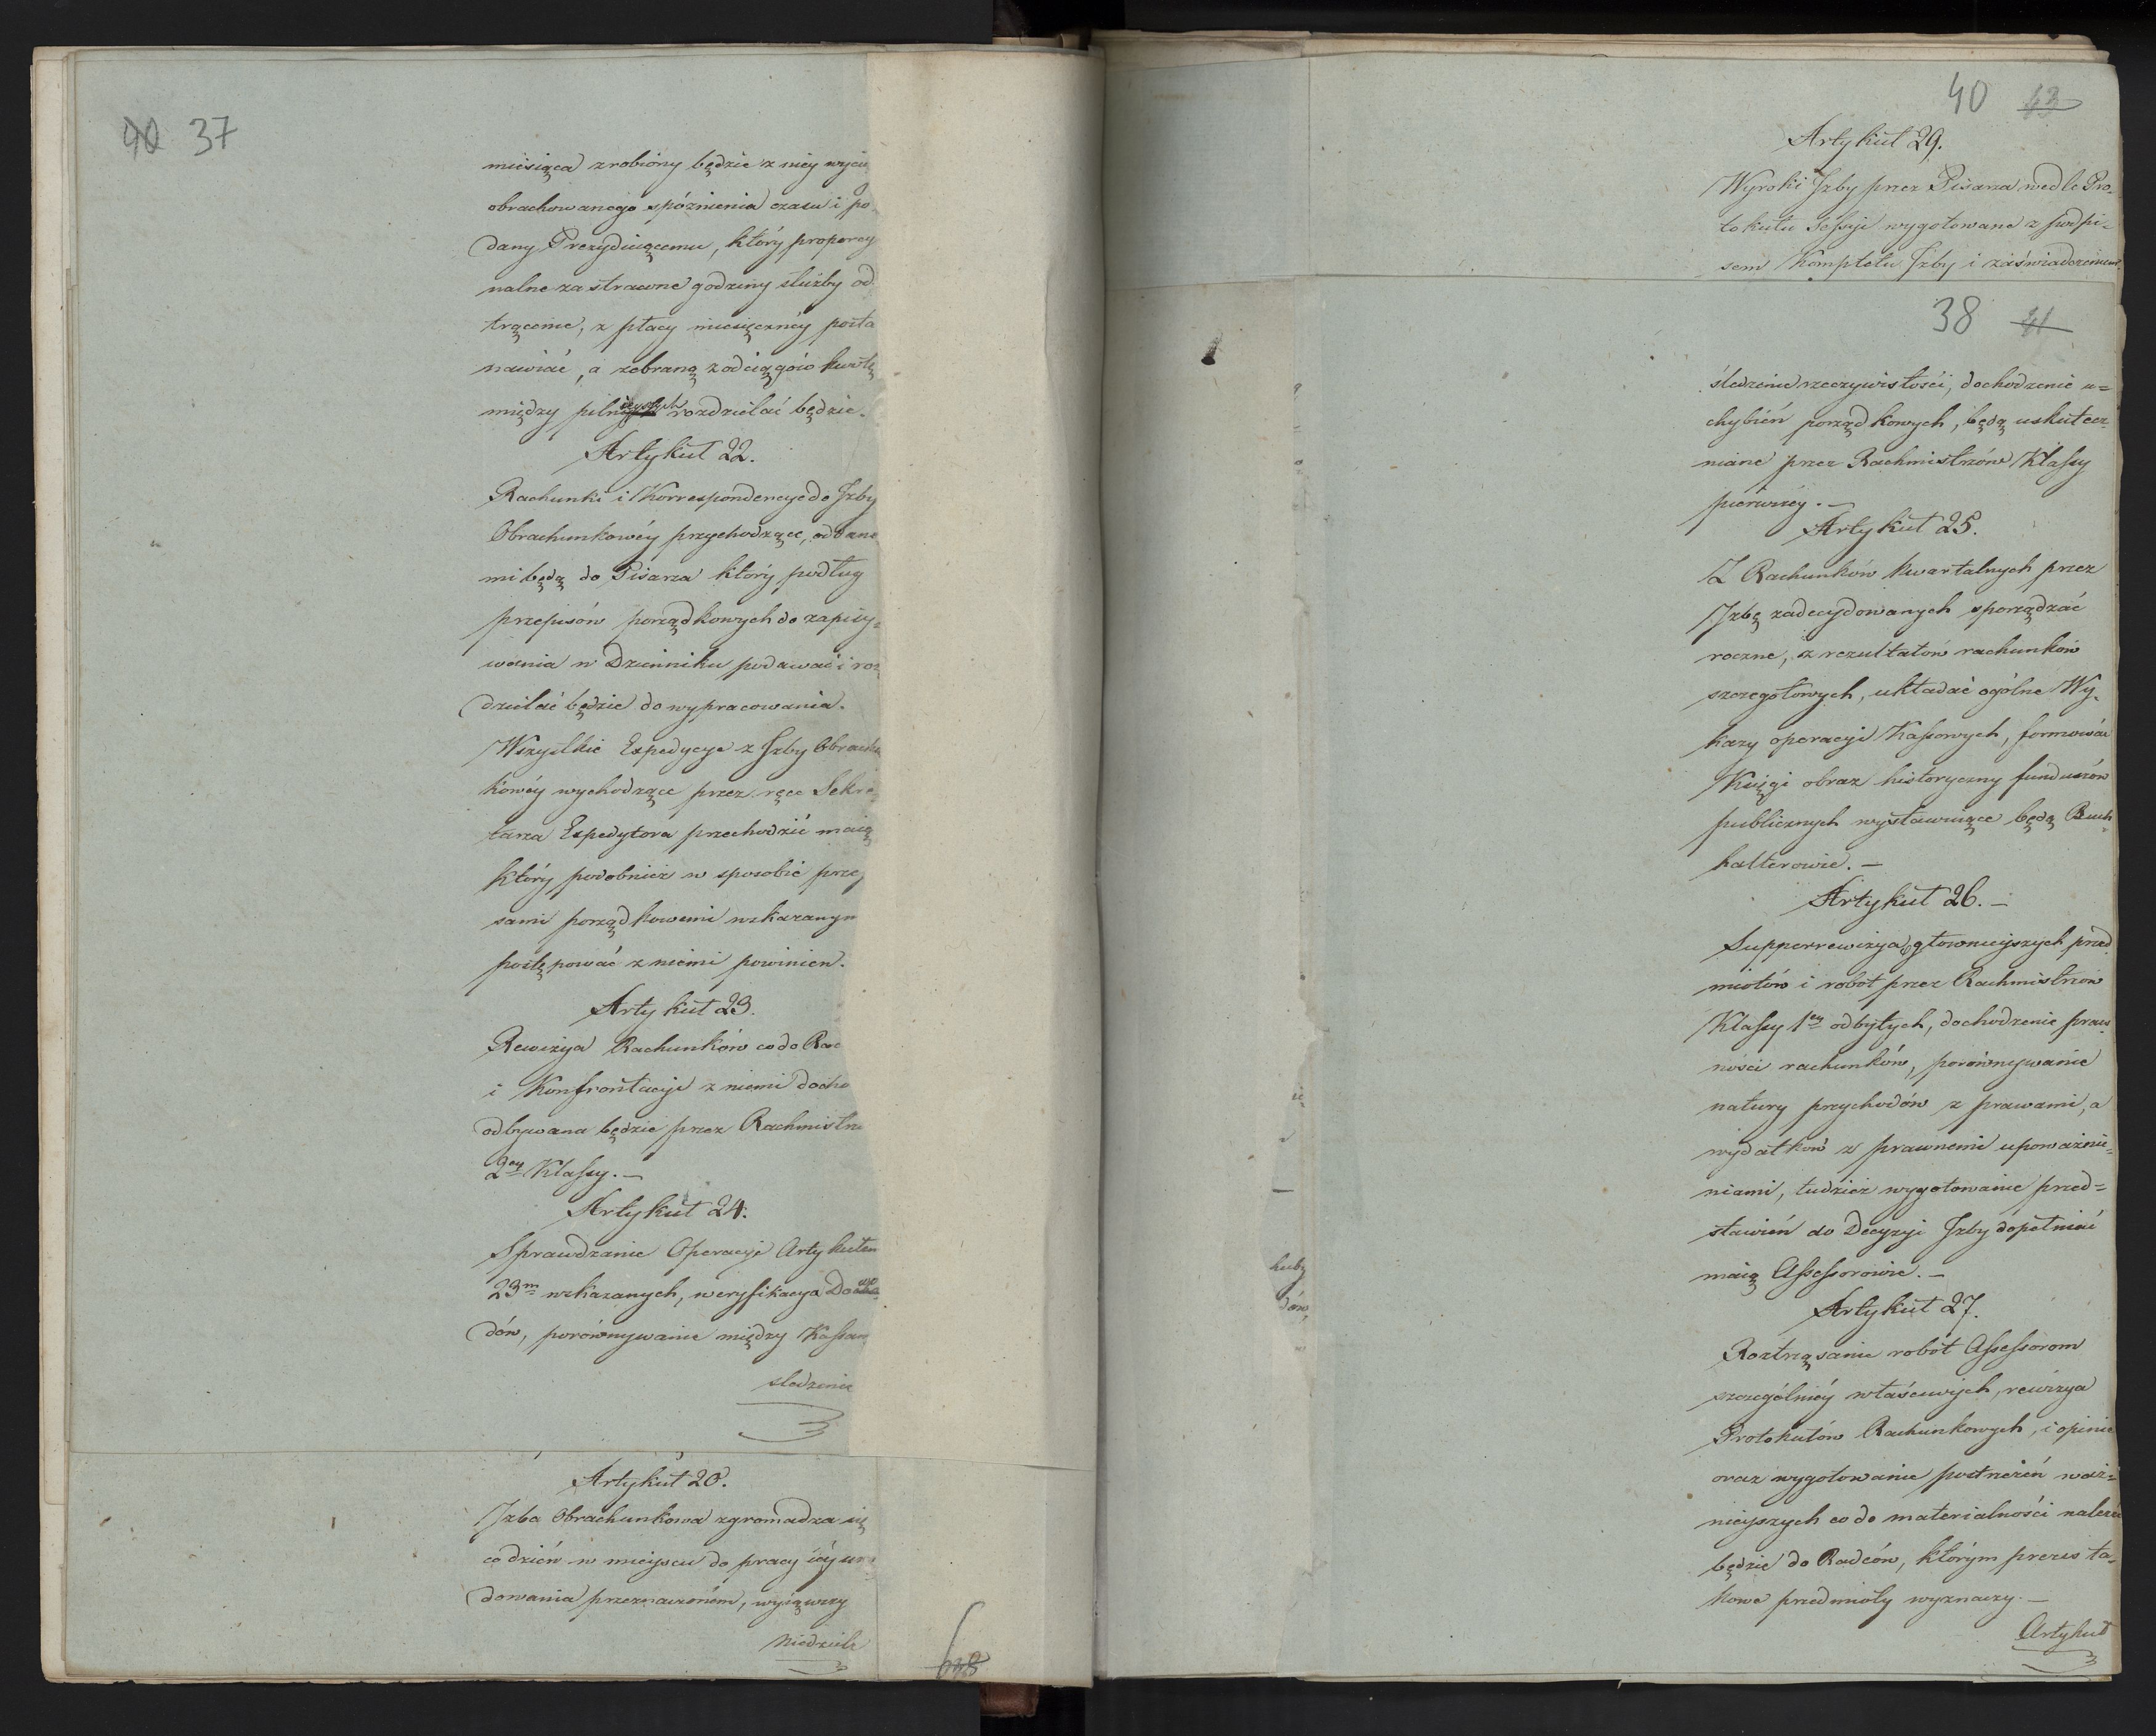 40 37
miesiąca zrobiony będzie z niey wyciąg
obrachowanego spóźnienia czasu i po-
dany Prezyduiącemu, który proporcy
nalne za stracone godziny służby od
trącenie, z płacy miesięcznéy posta
nawiać, a zebraną z odciągów kwotę
między pilnieyszych rozdzielać będzie.
Artykuł 22.
Rachunki i Korrespondencye do Izby
Obrachunkowéy przychodzące, oddane
mi będą do Pisarza który podług
przepisów porządkowych do zapisy-
wania w Dzienniku podawać i roz
dzielać będzie do wypracowania.
Wszystkie Expedycye z Izby Obrachu
kowéy wychodzące przez ręce Sekre-
tarza Expedytora przechodzić maią
który podobnież w sposobie przep
sami porządkowemi wskazanym
postępować z niemi powinien.
Artykuł 23.
Rewizya Rachunków co do Rac
i Konfrontacyi z niemi docho
odbywana będzie przez Rachmistrz
2ey Klassy. —
Artykuł 24.
Sprawdzanie Operacyi Artykułem
23m wskazanych, weryfikacya Dowo
dów, porównywanie między Kassam
sledzenie
Artykuł 20.
Izba Obrachunkowa zgromadza się
codzień w mieyscu do pracy iéy urzę
dowania przeznaczoném, wyiąwszy
Niedziele
40 43
Artykuł 29.
Wyroki Izby przez Pisarza wedle Pro-
tokułu Sessyi wygotowane z podpi-
sem Kompletu Izby i zaświadczeniem
38 41
śledzenie rzeczywistości, dochodzenie u=
chybień porządkowych, będą uskutecz
niane przez Rachmistrzów Klassy
pierwszéy. —
Artykuł 25.
Z Rachunków kwartalnych przez
Izbę zadecydowanych sporządzać
roczne, z rezultatów rachunków
szczegółowych, układać ogólne Wy-
kazy operacyi Kassowych, formować
Księgi obraz historyczny funduszów
publicznych wystawuiące będą Buch
halterowie. —
Artykuł 26. —
Supperrewizya głownieyszych przed
miotów i robót przez Rachmistrzów
Klassy 1ey odbytych, dochodzenie praw
ności rachunków, porównywanie
natury przychodów z prawami, a
wydatków z prawnemi upoważnie=
niami, tudzież wygotowanie przed=
stawień do Decyzyi Izby dopełniać
maią Assessorowie. —
Artykuł 27.
Roztrząsanie robót Assessorom
szczególniéy właściwych, rewizya
Protokułów Rachunkowych, i opinie
oraz wygotowanie postrzeżeń waż=
nieyszych co do materialności należeć
będzie do Radców, którym prezes ta-
kowe przedmioty wyznaczy. —
Artykuł